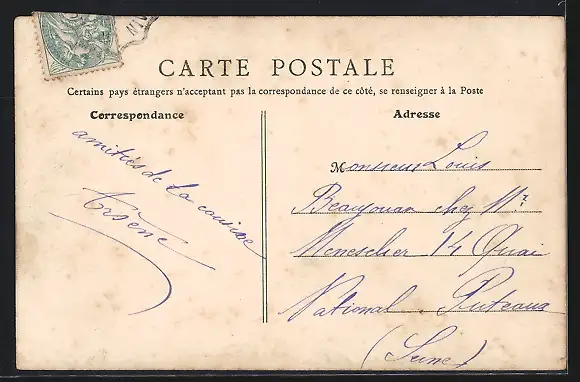 CARTE POSTALE
Certains pays étrangers n'acceptant pas la correspondance de ce côté, se renseigner à la Poste
Correspondance
Adresse
amitiés de la cousine
Arsène
Monsieur Louis
Beaujouan chez Mr
Menescher 14 Quai
National. Puteaux
(Seine)